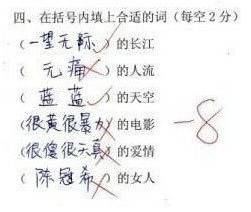 四、在括号内填上合适的词（每空2分）
（一望无际）的长江
（元痛）的人流
（蓝蓝）的天空
（很黄很暴力）的电影
（很傻很天真）的爱情
（陈冠希）的女人
-8